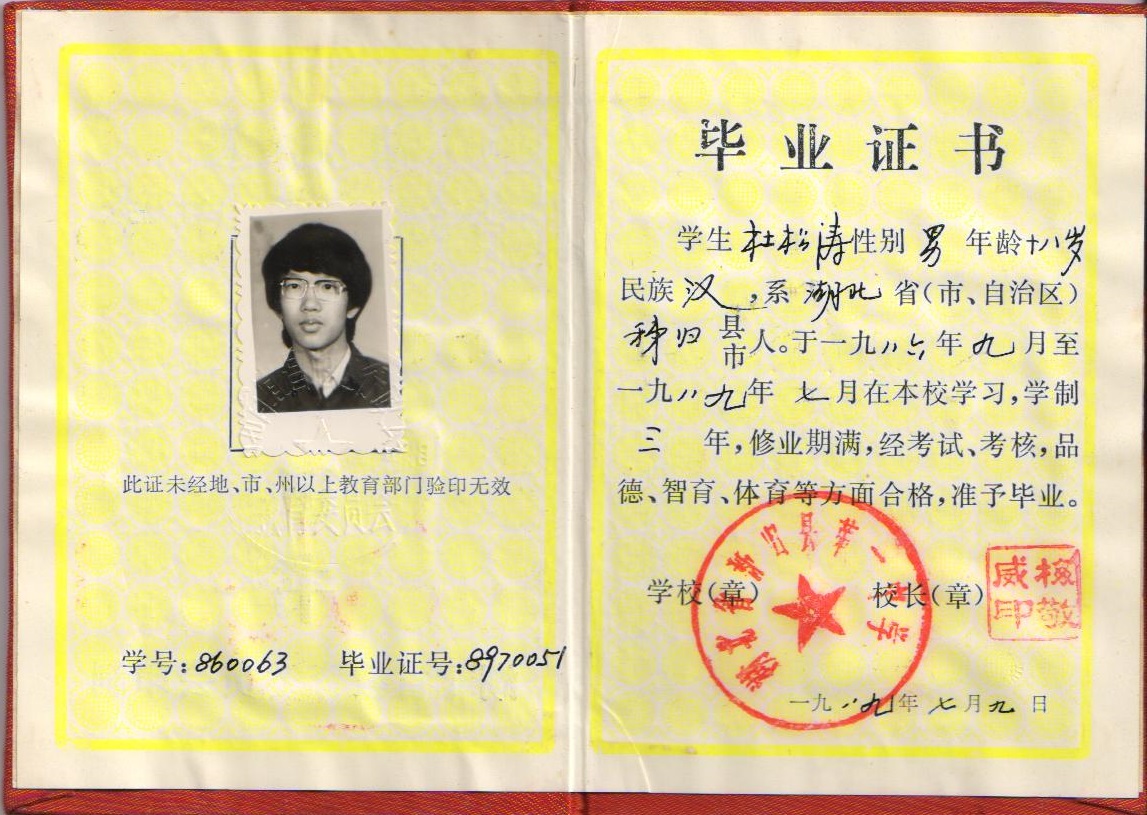 此证未经地、市、州以上教育部门验印无效
学号:860063 毕业证号:8970051
毕业证书
学生 杜松涛 性别 男 年龄十八岁
民族 汉 ,系 湖北 省(市、自治区)
秭归 县市 人。于一九八六年 九 月至
一九八九年 七月在本校学习,学制
三 年,修业期满,经考试、考核,品
德、智育、体育等方面合格,准予毕业。
学校(章) 校长(章)
湖北省秭归县第一中学
一九八九年 七月九日